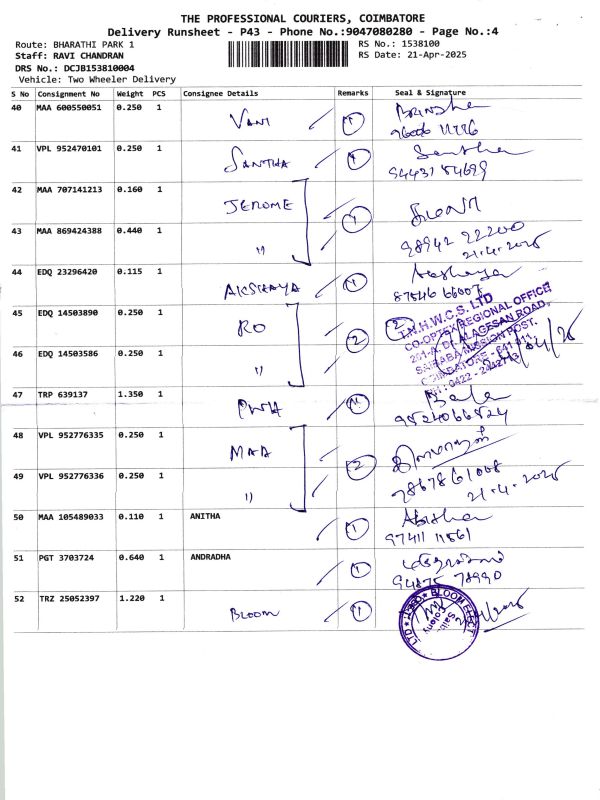 THE PROFESSIONAL COURIERS, COIMBATORE
Delivery Runsheet - P43 - Phone No.:9047080280 - Page No.:4
Route: BHARATHI PARK 1
RS No.: 1538100
Staff: RAVI CHANDRAN
RS Date: 21-Apr-2025
DRS No.: DCJB153810004
Vehicle: Two Wheeler Delivery
S No Consignment No Weight PCS Consignee Details Remarks Seal & Signature
40 MAA 600550051 0.250 1 VANI 1
41 VPL 952470101 0.250 1 SANTHA 1 Santha
94431 84699
42 MAA 707141213 0.160 1 JEROME 1
43 MAA 869424388 0.440 1 " 98942 22200
21.4.2025
44 EDQ 23296420 0.115 1 AKSHAYA 1 Akshaya
87546 66007
45 EDQ 14503890 0.250 1 RO 2 2
T.N.H.W.C.S. LTD
CO-OPTEX REGIONAL OFFICE
201-A, Dr. ALAGESAN ROAD,
SAIBABA MISSION POST,
COIMBATORE - 641 011.
46 EDQ 14503586 0.250 1 "
47 TRP 639137 1.350 1 PWH Bala
9524066524
48 VPL 952776335 0.250 1 MAA 2
78678 61008
49 VPL 952776336 0.250 1 " 21.4.2025
50 MAA 105489033 0.110 1 ANITHA 1
97411 11561
51 PGT 3703724 0.640 1 ANDRADHA 1
94875 78990
52 TRZ 25052397 1.220 1 BLOOM